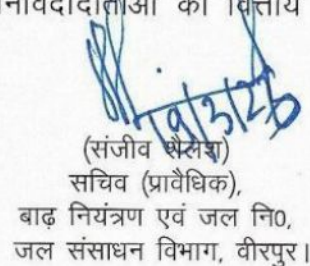 निविदादाताओं का वित्तीय
19/3/26
(संजीव शैलेश)
सचिव (प्रावैधिक),
बाढ़ नियंत्रण एवं जल नि0,
जल संसाधन विभाग, वीरपुर।